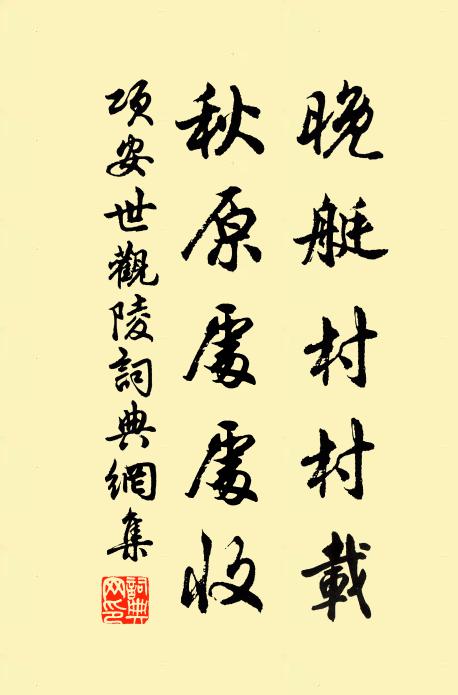 晚艇村村載
秋原處處收
項安世觀陵詞典網集
詞典網印